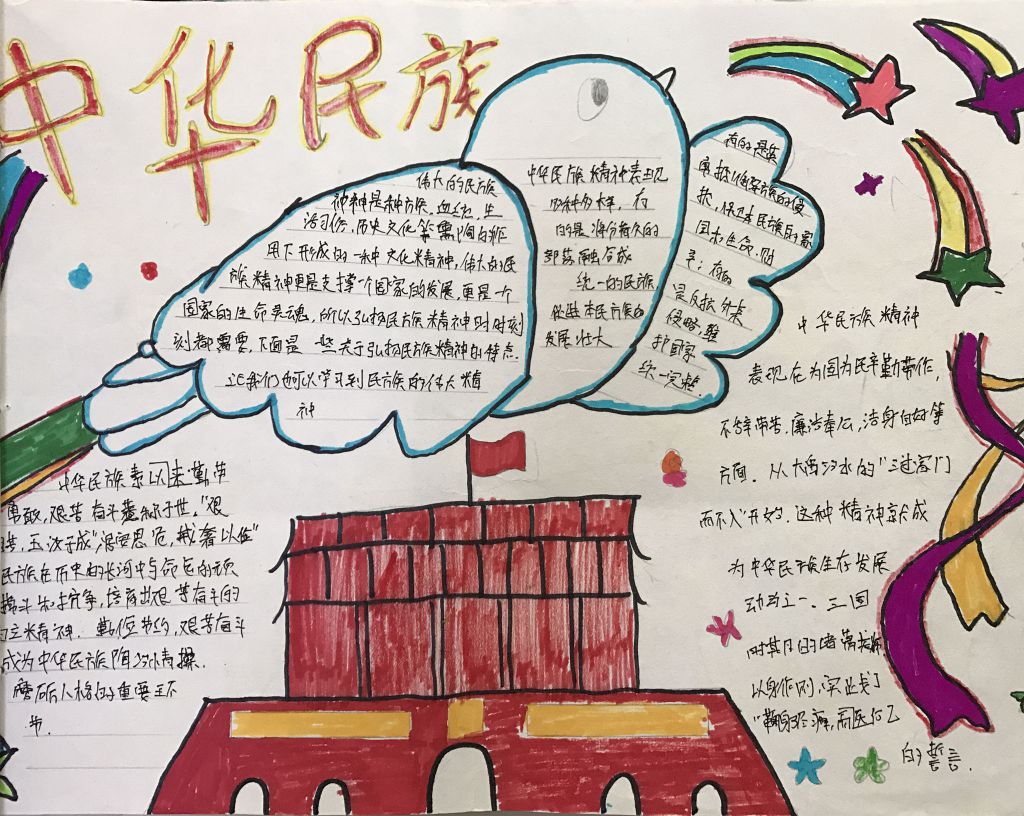 中华民族
伟大的民族
神神是种族、血统、生
活习俗,历史文化等
用下形成的一种文化精神,伟大的民
族精神更是支撑一个国家的发展,更是一个
国家的生命灵魂,所以弘扬民族精神时时刻
刻都需要,下面是一些关于弘扬民族精神的特点.
让我们也可以学习到民族的伟大精
神
中华民族精神表现
四种力量,有
的是
部落融合成
统一的民族
促进本民族的
发展壮大
有的是英
勇抵御异族的侵
扰,保卫本民族的家
园和生命,财
产;有的
是反抗外来
侵略,维
护国家
统一完整.
中华民族精神
表现在为国为民辛勤劳作,
不辞劳苦,廉洁奉公,洁身自好等
方面.从大禹治水的“三过家门
而不入”开始.这种精神就成
为中华民族生存发展
动力之一.三国
时期的诸葛
以身作则,实践了
“鞠躬尽瘁,而死后已
的誓言.
中华民族素以来勤劳
勇敢,艰苦奋斗著称于世,“艰
玉汝于成”“居安思危,戒奢以俭”
民族在历史的长河中与命运的顽
搏斗和抗争,培育出艰苦奋斗的
精神.勤俭节约,艰苦奋斗
成为中华民族陶冶情操.
磨砺人格的重要环
节.